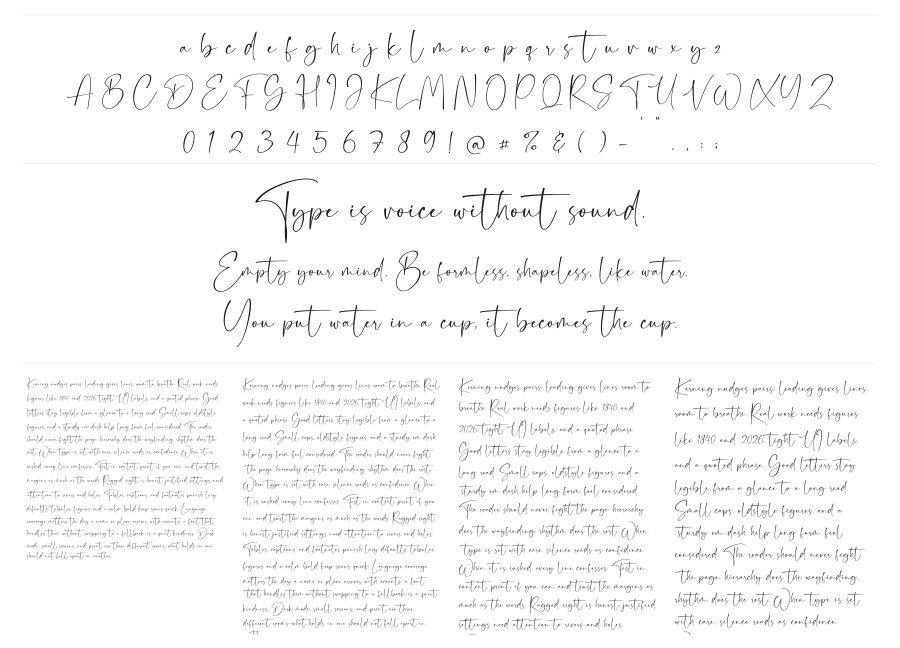 a b c d e f g h i j k l m n o p q r s t u v w x y z
A B C D E F G H I J K L M N O P Q R S T U V W X Y Z
0 1 2 3 4 5 6 7 8 9 ! @ # % & ( ) - ' " . , : ;
Type is voice without sound.
Empty your mind. Be formless, shapeless, like water.
You put water in a cup, it becomes the cup.
Kerning nudges pairs, leading gives lines room to breathe. Real work needs
figures like 1840 and 2026, tight UI labels, and a quoted phrase. Good
letters stay legible from a glance to a long read. Small caps, oldstyle
figures, and a sturdy em dash help long form feel considered. The reader
should never fight the page, hierarchy does the wayfinding, rhythm does the
rest. When type is set with care, silence reads as confidence. When it is
rushed, every line confesses. Test in context, print if you can, and treat the
margins as much as the words. Ragged right is honest, justified settings need
attention to rivers and holes. Tables, captions, and footnotes punish lazy
defaults, tabular figures and a calm bold keep scans quick. Language
coverage matters the day a name or place arrives with accents, a font that
handles them without swapping to a fallback is a quiet kindness. Dark
mode, small screens, and print are three different rooms, what holds in one
should not fall apart in another.
Kerning nudges pairs, leading gives lines room to breathe. Real
work needs figures like 1840 and 2026, tight UI labels, and
a quoted phrase. Good letters stay legible from a glance to a
long read. Small caps, oldstyle figures, and a sturdy em dash
help long form feel considered. The reader should never fight
the page, hierarchy does the wayfinding, rhythm does the rest.
When type is set with care, silence reads as confidence. When
it is rushed, every line confesses. Test in context, print if you
can, and treat the margins as much as the words. Ragged right
is honest, justified settings need attention to rivers and holes.
Tables, captions, and footnotes punish lazy defaults, tabular
figures and a calm bold keep scans quick. Language coverage
matters the day a name or place arrives with accents, a font
that handles them without swapping to a fallback is a quiet
kindness. Dark mode, small screens, and print are three
different rooms, what holds in one should not fall apart in
Kerning nudges pairs, leading gives lines room to
breathe. Real work needs figures like 1840 and
2026, tight UI labels, and a quoted phrase.
Good letters stay legible from a glance to a
long read. Small caps, oldstyle figures, and a
sturdy em dash help long form feel considered.
The reader should never fight the page, hierarchy
does the wayfinding, rhythm does the rest. When
type is set with care, silence reads as confidence.
When it is rushed, every line confesses. Test in
context, print if you can, and treat the margins as
much as the words. Ragged right is honest, justified
settings need attention to rivers and holes.
Kerning nudges pairs, leading gives lines
room to breathe. Real work needs figures
like 1840 and 2026, tight UI labels,
and a quoted phrase. Good letters stay
legible from a glance to a long read.
Small caps, oldstyle figures, and a
sturdy em dash help long form feel
considered. The reader should never fight
the page, hierarchy does the wayfinding,
rhythm does the rest. When type is set
with care, silence reads as confidence.